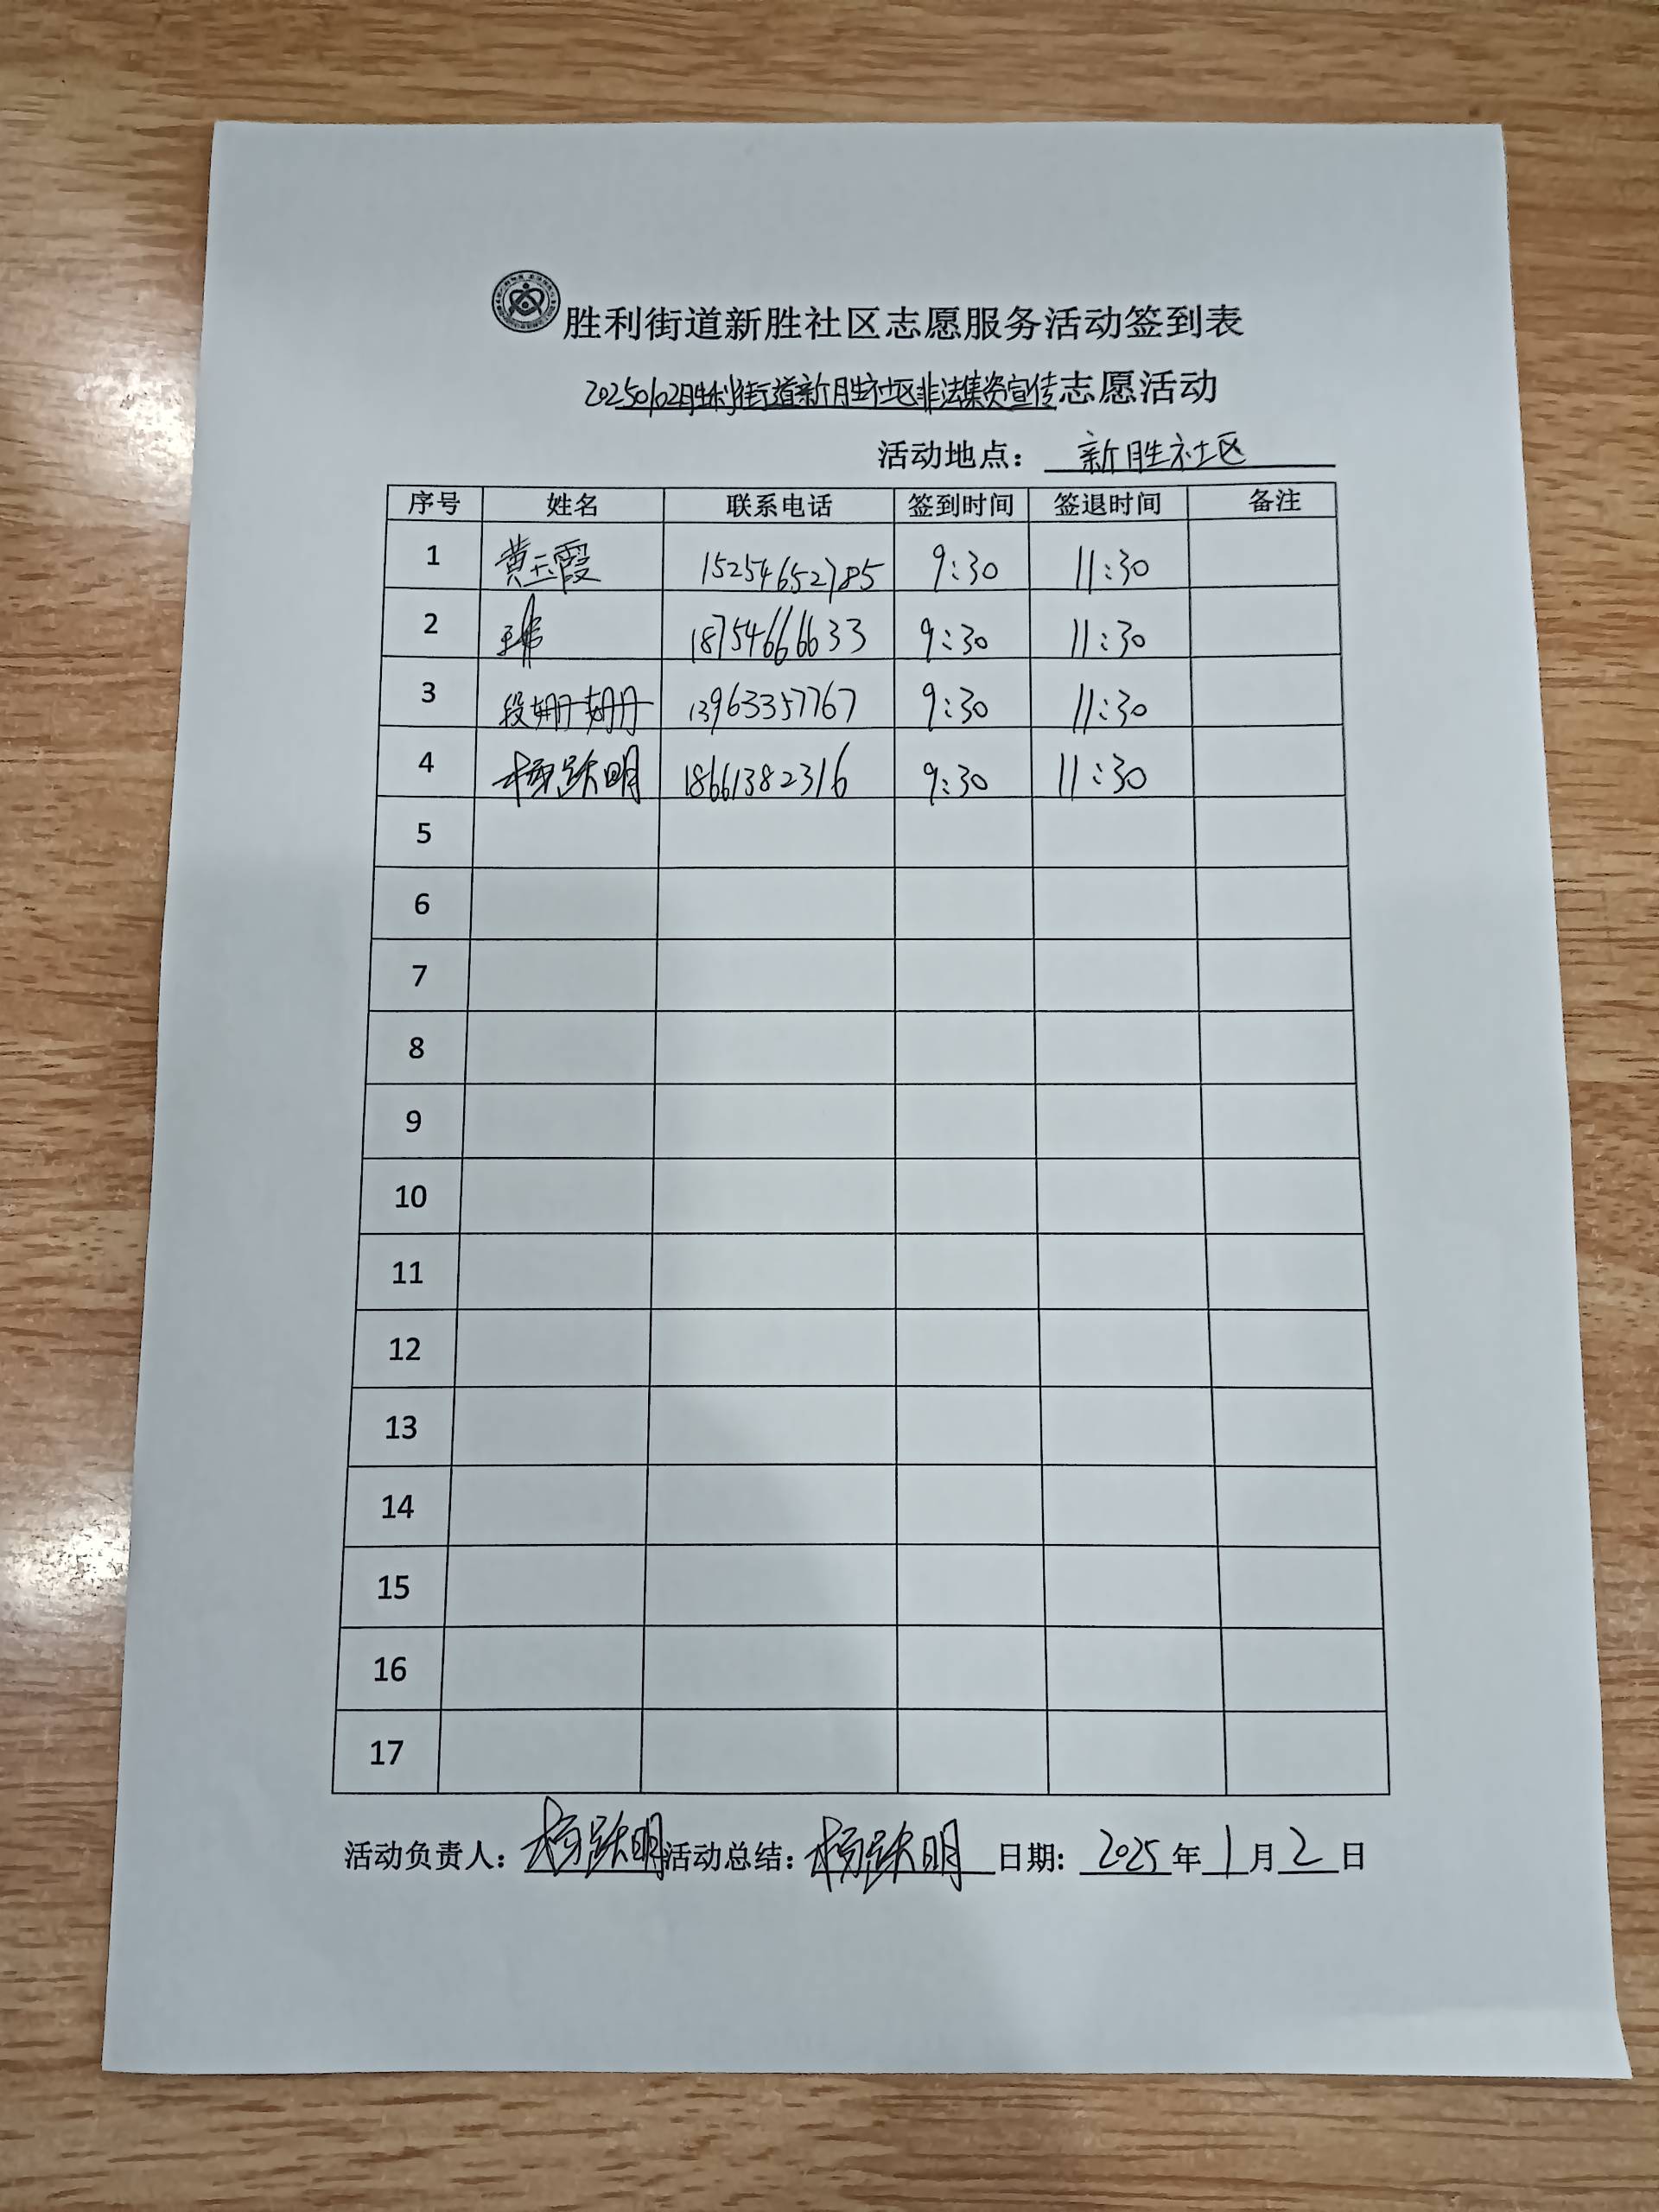 胜利街道新胜社区志愿服务活动签到表
20250102胜利街道新胜社区非法集资宣传志愿活动
活动地点: 新胜社区
序号 姓名 联系电话 签到时间 签退时间 备注
1 黄玉霞 15254652785 9:30 11:30
2 18754666633 9:30 11:30
3 段姗姗 13963357767 9:30 11:30
4 杨跃明 18661382316 9:30 11:30
5
6
7
8
9
10
11
12
13
14
15
16
17
活动负责人: 杨跃明 活动总结: 杨跃明 日期: 2025 年 1 月 2 日